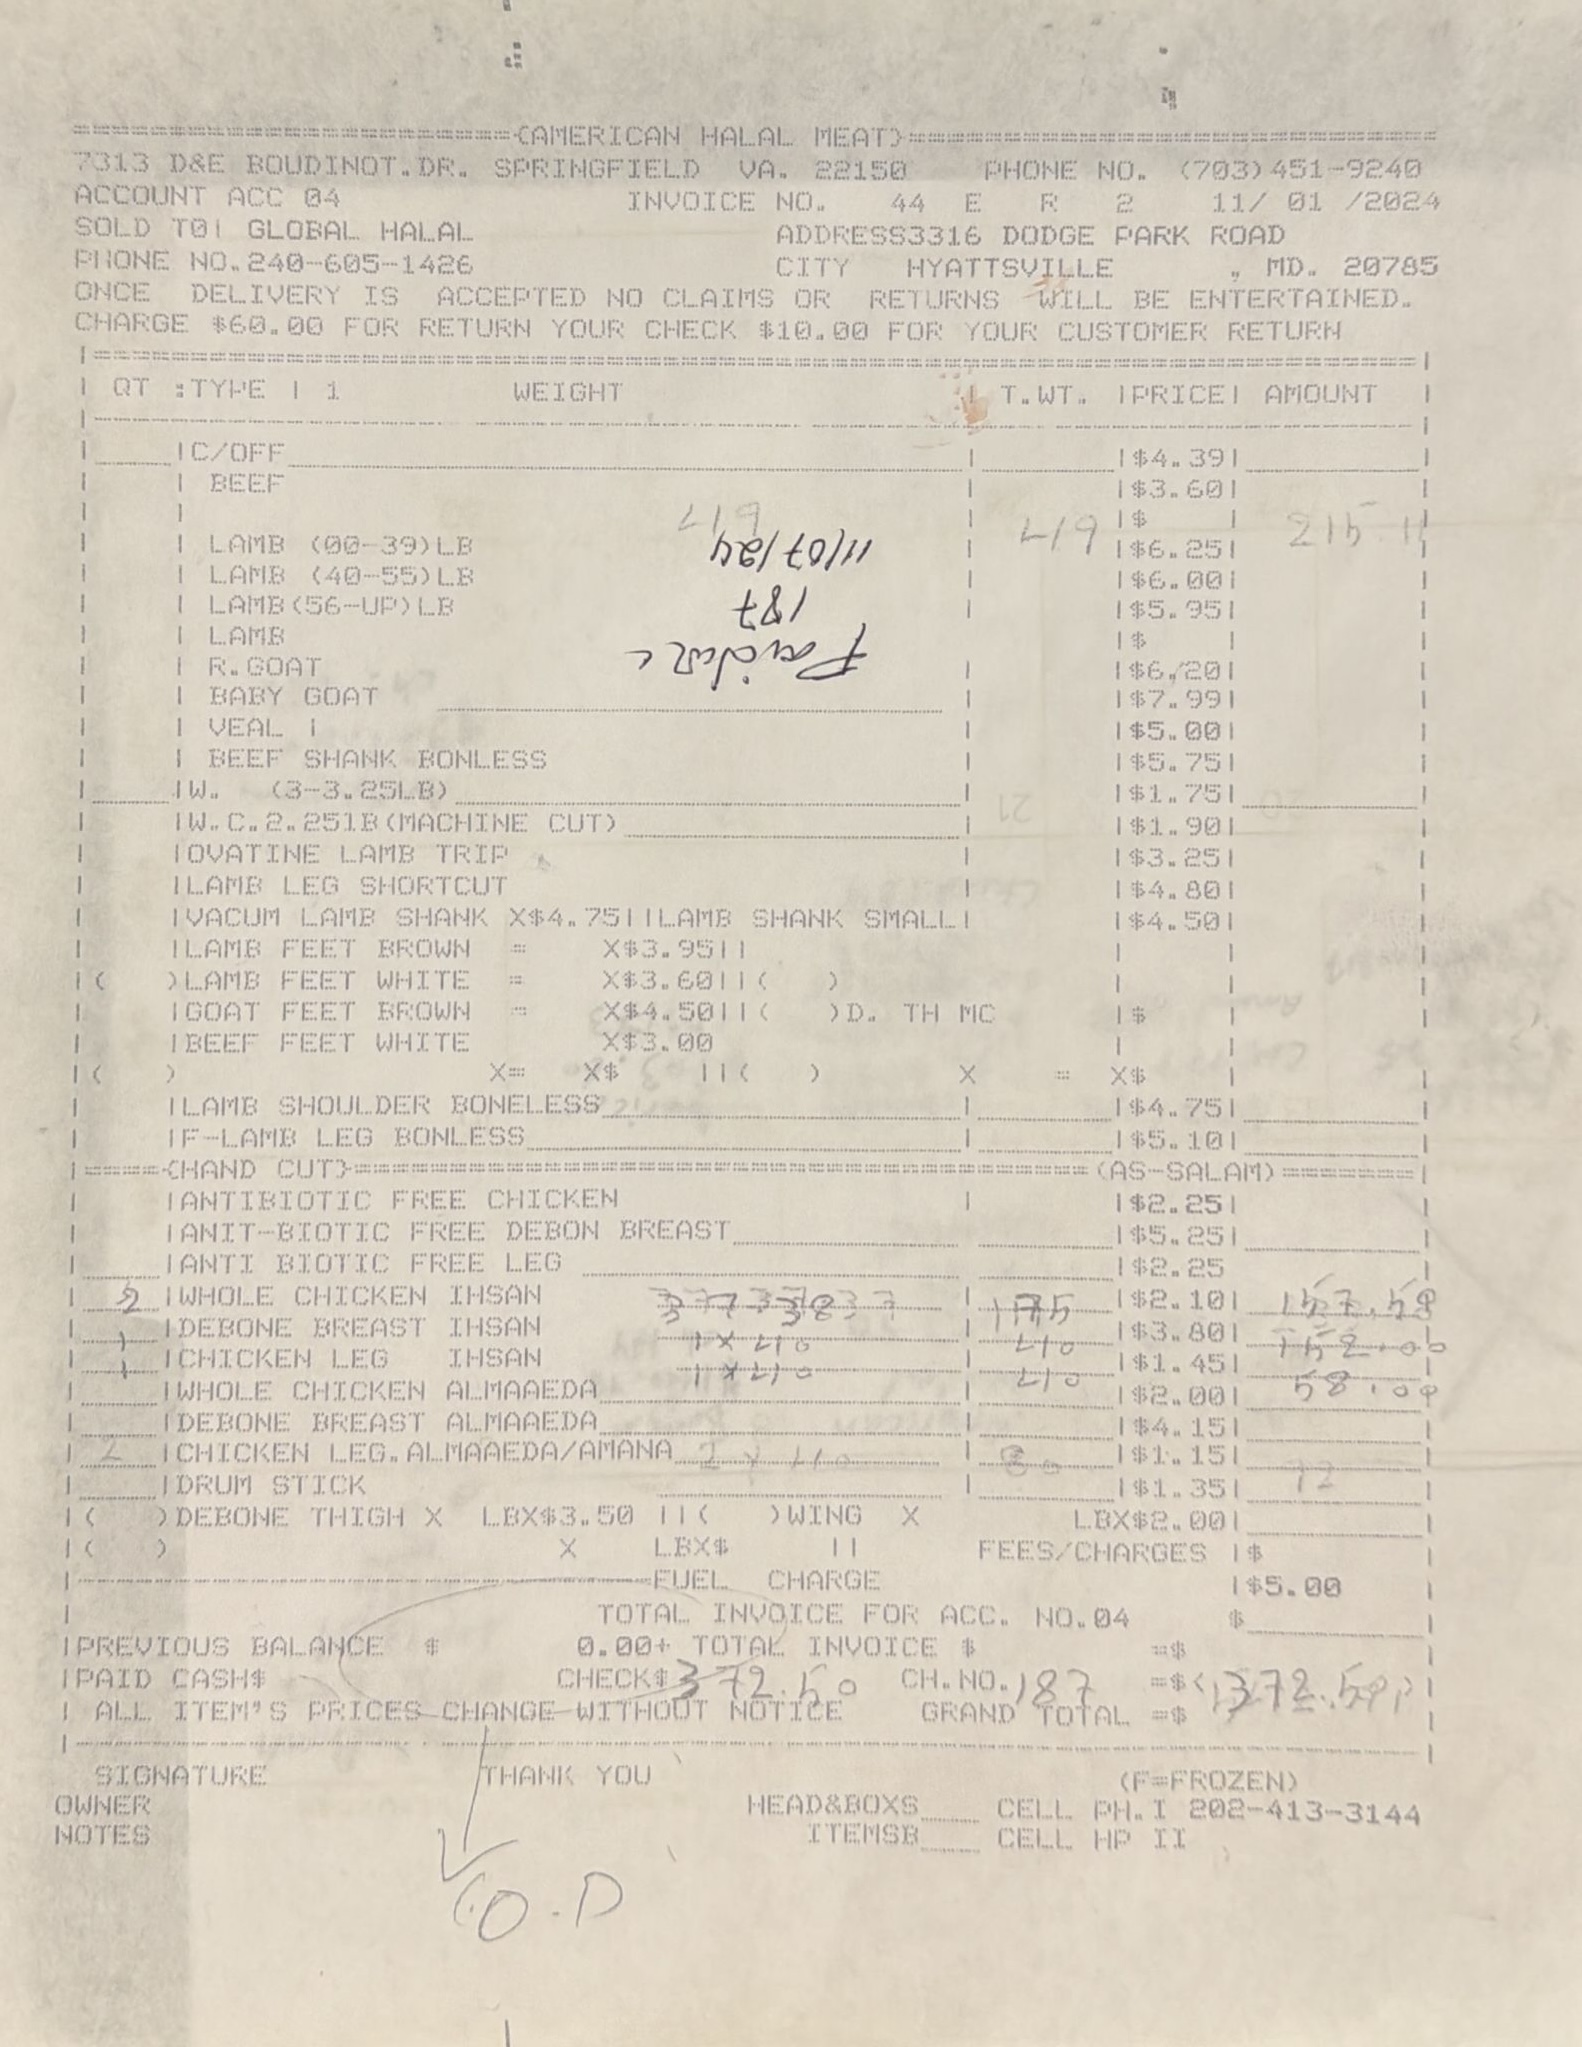 =======================(AMERICAN HALAL MEAT)============================
7313 D&E BOUDINOT.DR. SPRINGFIELD VA. 22150 PHONE NO. (703)451-9240
ACCOUNT ACC 04 INVOICE NO. 44 E R 2 11/ 01 /2024
SOLD TO| GLOBAL HALAL ADDRESS3316 DODGE PARK ROAD
PHONE NO.240-605-1426 CITY HYATTSVILLE , MD. 20785
ONCE DELIVERY IS ACCEPTED NO CLAIMS OR RETURNS WILL BE ENTERTAINED.
CHARGE $60.00 FOR RETURN YOUR CHECK $10.00 FOR YOUR CUSTOMER RETURN
| QT :TYPE | 1 WEIGHT | T.WT. |PRICE| AMOUNT |
|C/OFF |$4.39|
| BEEF |$3.60|
|$ |
| LAMB (00-39)LB 11/07/24 |$6.25|
| LAMB (40-55)LB |$6.00|
| LAMB(56-UP)LB 187 |$5.95|
| LAMB |$ |
| R.GOAT |$6.20|
| BABY GOAT |$7.99|
| VEAL | |$5.00|
| BEEF SHANK BONLESS |$5.75|
|W. (3-3.25LB) |$1.75|
|W.C.2.251B(MACHINE CUT) |$1.90|
|OVATINE LAMB TRIP |$3.25|
|LAMB LEG SHORTCUT |$4.80|
|VACUM LAMB SHANK X$4.75||LAMB SHANK SMALL| |$4.50|
|LAMB FEET BROWN = X$3.95||
|( )LAMB FEET WHITE = X$3.60||( )
|GOAT FEET BROWN = X$4.50||( )D. TH MC |$ |
|BEEF FEET WHITE X$3.00
|( ) X= X$ ||( ) X = X$ |
|LAMB SHOULDER BONELESS |$4.75|
|F-LAMB LEG BONLESS |$5.10|
|====(HAND CUT)======================================(AS-SALAM)=======|
|ANTIBIOTIC FREE CHICKEN |$2.25|
|ANIT-BIOTIC FREE DEBON BREAST |$5.25|
|ANTI BIOTIC FREE LEG |$2.25
|WHOLE CHICKEN IHSAN |$2.10|
1 |DEBONE BREAST IHSAN |$3.80| 152.00
1 |CHICKEN LEG IHSAN |$1.45| 58.00
|WHOLE CHICKEN ALMAAEDA |$2.00|
|DEBONE BREAST ALMAAEDA |$4.15|
2 |CHICKEN LEG.ALMAAEDA/AMANA 2 x 40 80 |$1.15|
|DRUM STICK |$1.35|
|( )DEBONE THIGH X LBX$3.50 ||( )WING X LBX$2.00|
|( ) X LBX$ || FEES/CHARGES |$
FUEL CHARGE |$5.00
TOTAL INVOICE FOR ACC. NO.04 $
|PREVIOUS BALANCE $ 0.00+ TOTAL INVOICE $ =$
|PAID CASH$ CHECK$ 372.50 CH.NO. 187 =$( 372.50 )
| ALL ITEM'S PRICES CHANGE WITHOUT NOTICE GRAND TOTAL =$
SIGNATURE THANK YOU (F=FROZEN)
OWNER HEAD&BOXS CELL PH.I 202-413-3144
NOTES ITEMSB CELL HP II